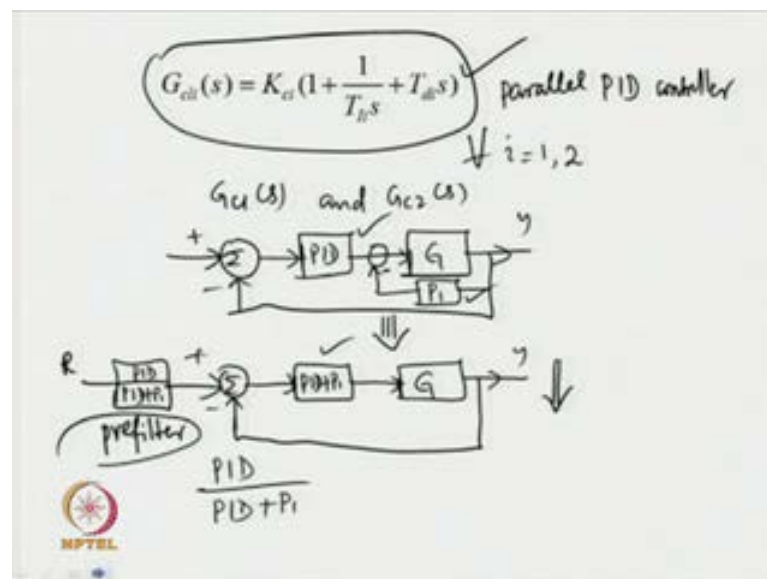 G_{cii}(s) = K_{ci}(1 + \frac{1}{T_{Ii}s} + T_{di}s)
parallel PID controller
∀ i = 1, 2
Gc1(s) and Gc2(s)
+ Σ PID - G y
- P1
R PID + Σ PID+P1 G y
PID+P1 -
prefilter
PID
PID+P1
NPTEL